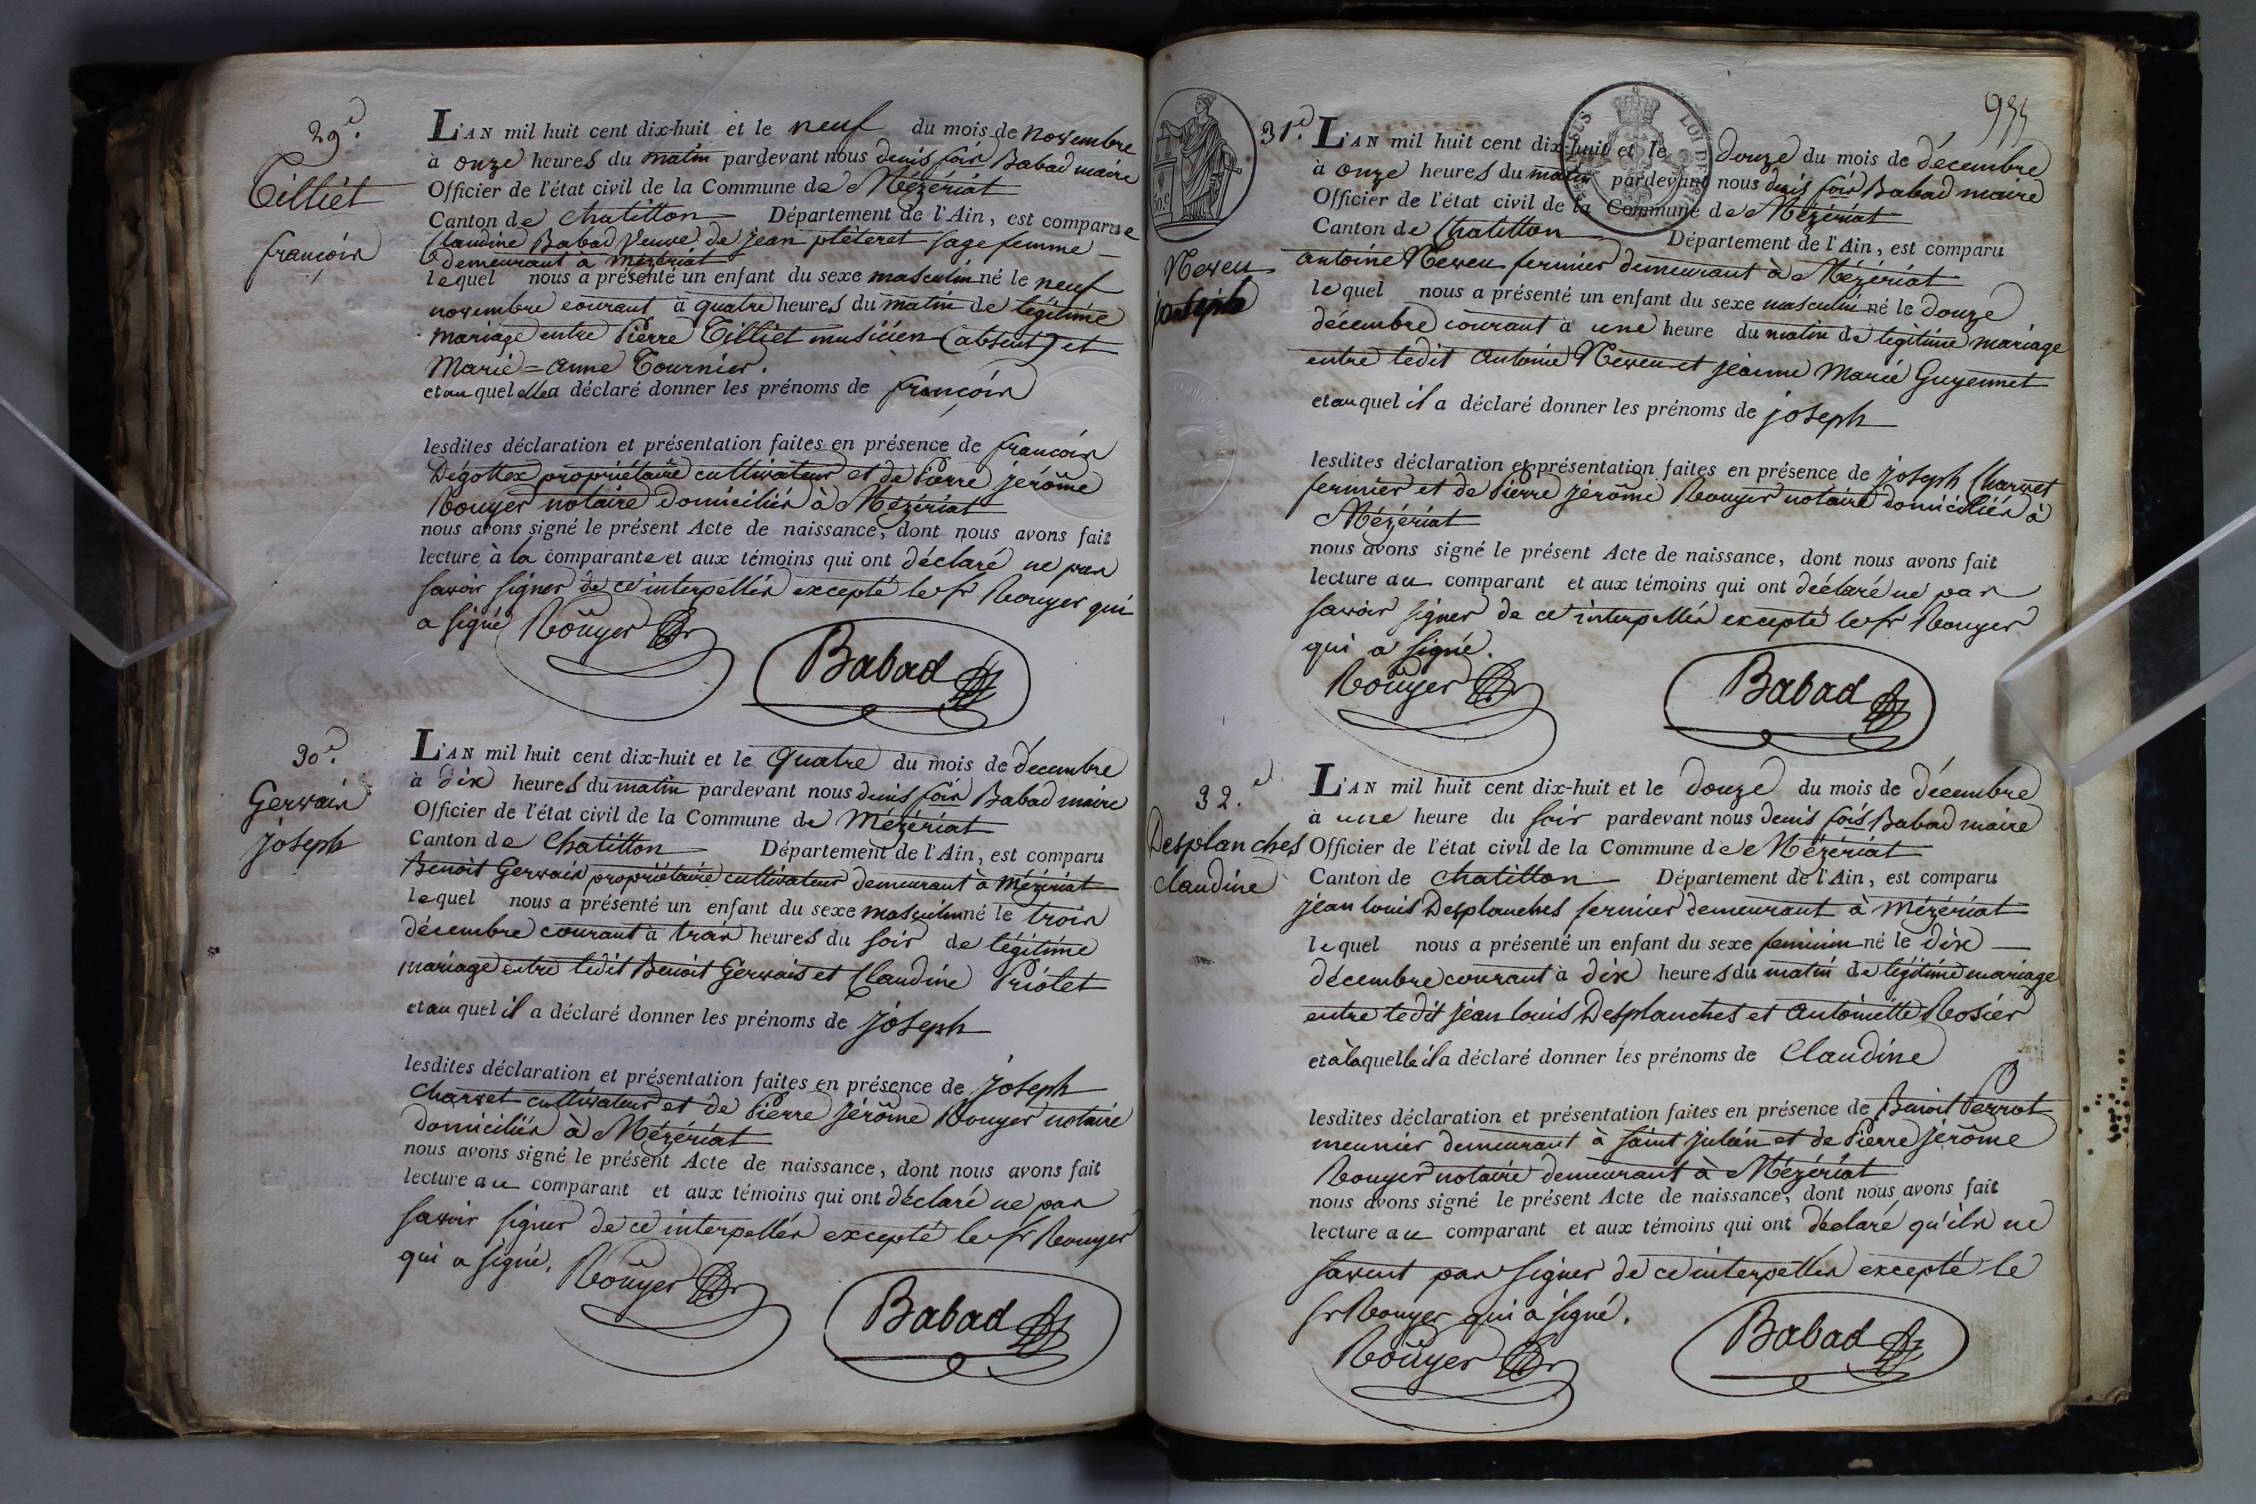 29.e
Tilliet
françois
L'AN mil huit cent dix-huit et le neuf du mois de novembre
à onze heures du matin pardevant nous denis foix Babad maire
Officier de l'état civil de la Commune de Mézériat
Canton de chatillon Département de l'Ain, est comparue
Claudine Babad veuve de jean pléteret sage femme
demeurant à mézériat
lequel nous a présenté un enfant du sexe masculin né le neuf
novembre courant à quatre heures du matin de légitime
mariage entre Pierre Tilliet musicien (absent) et
Marie=anne Tournier.
et au quel elle a déclaré donner les prénoms de françois
lesdites déclaration et présentation faites en présence de françois
Dégottex propriétaire cultivateur et de Pierre jérôme
Rouyer notaire domiciliés à Mézériat
nous avons signé le présent Acte de naissance, dont nous avons fait
lecture à la comparante et aux témoins qui ont déclaré ne pas
savoir signer de ce interpellés excepté le sr Rouyer qui
a signé Roüyer
Babad
30.e
Gervais
joseph
L'AN mil huit cent dix-huit et le quatre du mois de décembre
à dix heures du matin pardevant nous denis foix Babad maire
Officier de l'état civil de la Commune de Mézériat
Canton de chatillon Département de l'Ain, est comparu
Benoit Gervais propriétaire cultivateur demeurant à Mézériat
lequel nous a présenté un enfant du sexe masculin né le trois
décembre courant à trois heures du soir de légitime
mariage entre ledit Benoit Gervais et Claudine Priolet
et au quel il a déclaré donner les prénoms de joseph
lesdites déclaration et présentation faites en présence de joseph
Charvet cultivateur et de Pierre jérôme Rouyer notaire
domiciliés à Mézériat
nous avons signé le présent Acte de naissance, dont nous avons fait
lecture au comparant et aux témoins qui ont déclaré ne pas
savoir signer de ce interpellés excepté le sr Rouyer
qui a signé. Roüyer
Babad
31.e
Neveu
joseph
L'AN mil huit cent dix-huit et le douze du mois de décembre
à onze heures du matin pardevant nous denis foix Babad maire
Officier de l'état civil de la Commune de Mézériat
Canton de Chatillon Département de l'Ain, est comparu
antoine Neveu fermier demeurant à Mézériat
lequel nous a présenté un enfant du sexe masculin né le douze
décembre courant à une heure du matin de légitime mariage
entre ledit antoine Neveu et jeanne Marie Guyennet
et au quel il a déclaré donner les prénoms de joseph
lesdites déclaration et présentation faites en présence de joseph Charvet
fermier et de Pierre jérôme Rouyer notaire domiciliés à
Mézériat
nous avons signé le présent Acte de naissance, dont nous avons fait
lecture au comparant et aux témoins qui ont déclaré ne pas
savoir signer de ce interpellés excepté le sr Rouyer
qui a signé.
Roüyer
Babad
32.e
Desplanches
claudine
L'AN mil huit cent dix-huit et le douze du mois de décembre
à une heure du soir pardevant nous denis foix Babad maire
Officier de l'état civil de la Commune de Mézériat
Canton de chatillon Département de l'Ain, est comparu
jean louis Desplanches fermier demeurant à mézériat
lequel nous a présenté un enfant du sexe feminin né le dix
décembre courant à dix heures du matin de légitime mariage
entre ledit jean louis Desplanches et antoinette Rosier
et à laquelle il a déclaré donner les prénoms de Claudine
lesdites déclaration et présentation faites en présence de Benoit Perrot
meunier demeurant à saint julien et de Pierre jérôme
Rouyer notaire demeurant à Mézériat
nous avons signé le présent Acte de naissance, dont nous avons fait
lecture au comparant et aux témoins qui ont déclaré qu'ils ne
savent pas signer de ce interpellés excepté le
sr Rouyer qui a signé.
Roüyer
Babad